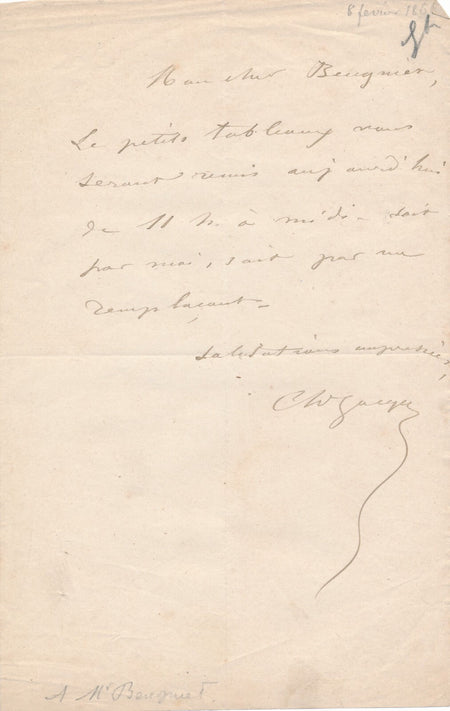 8 fevrier 186
Mon cher Beugniet,
Les petits tableaux vous
seront remis aujourd'hui
de 11 h. à midi - soit
par moi, soit par un
remplaçant -
salutations empressées,
Ch. Jacque
A Mr Beugniet.